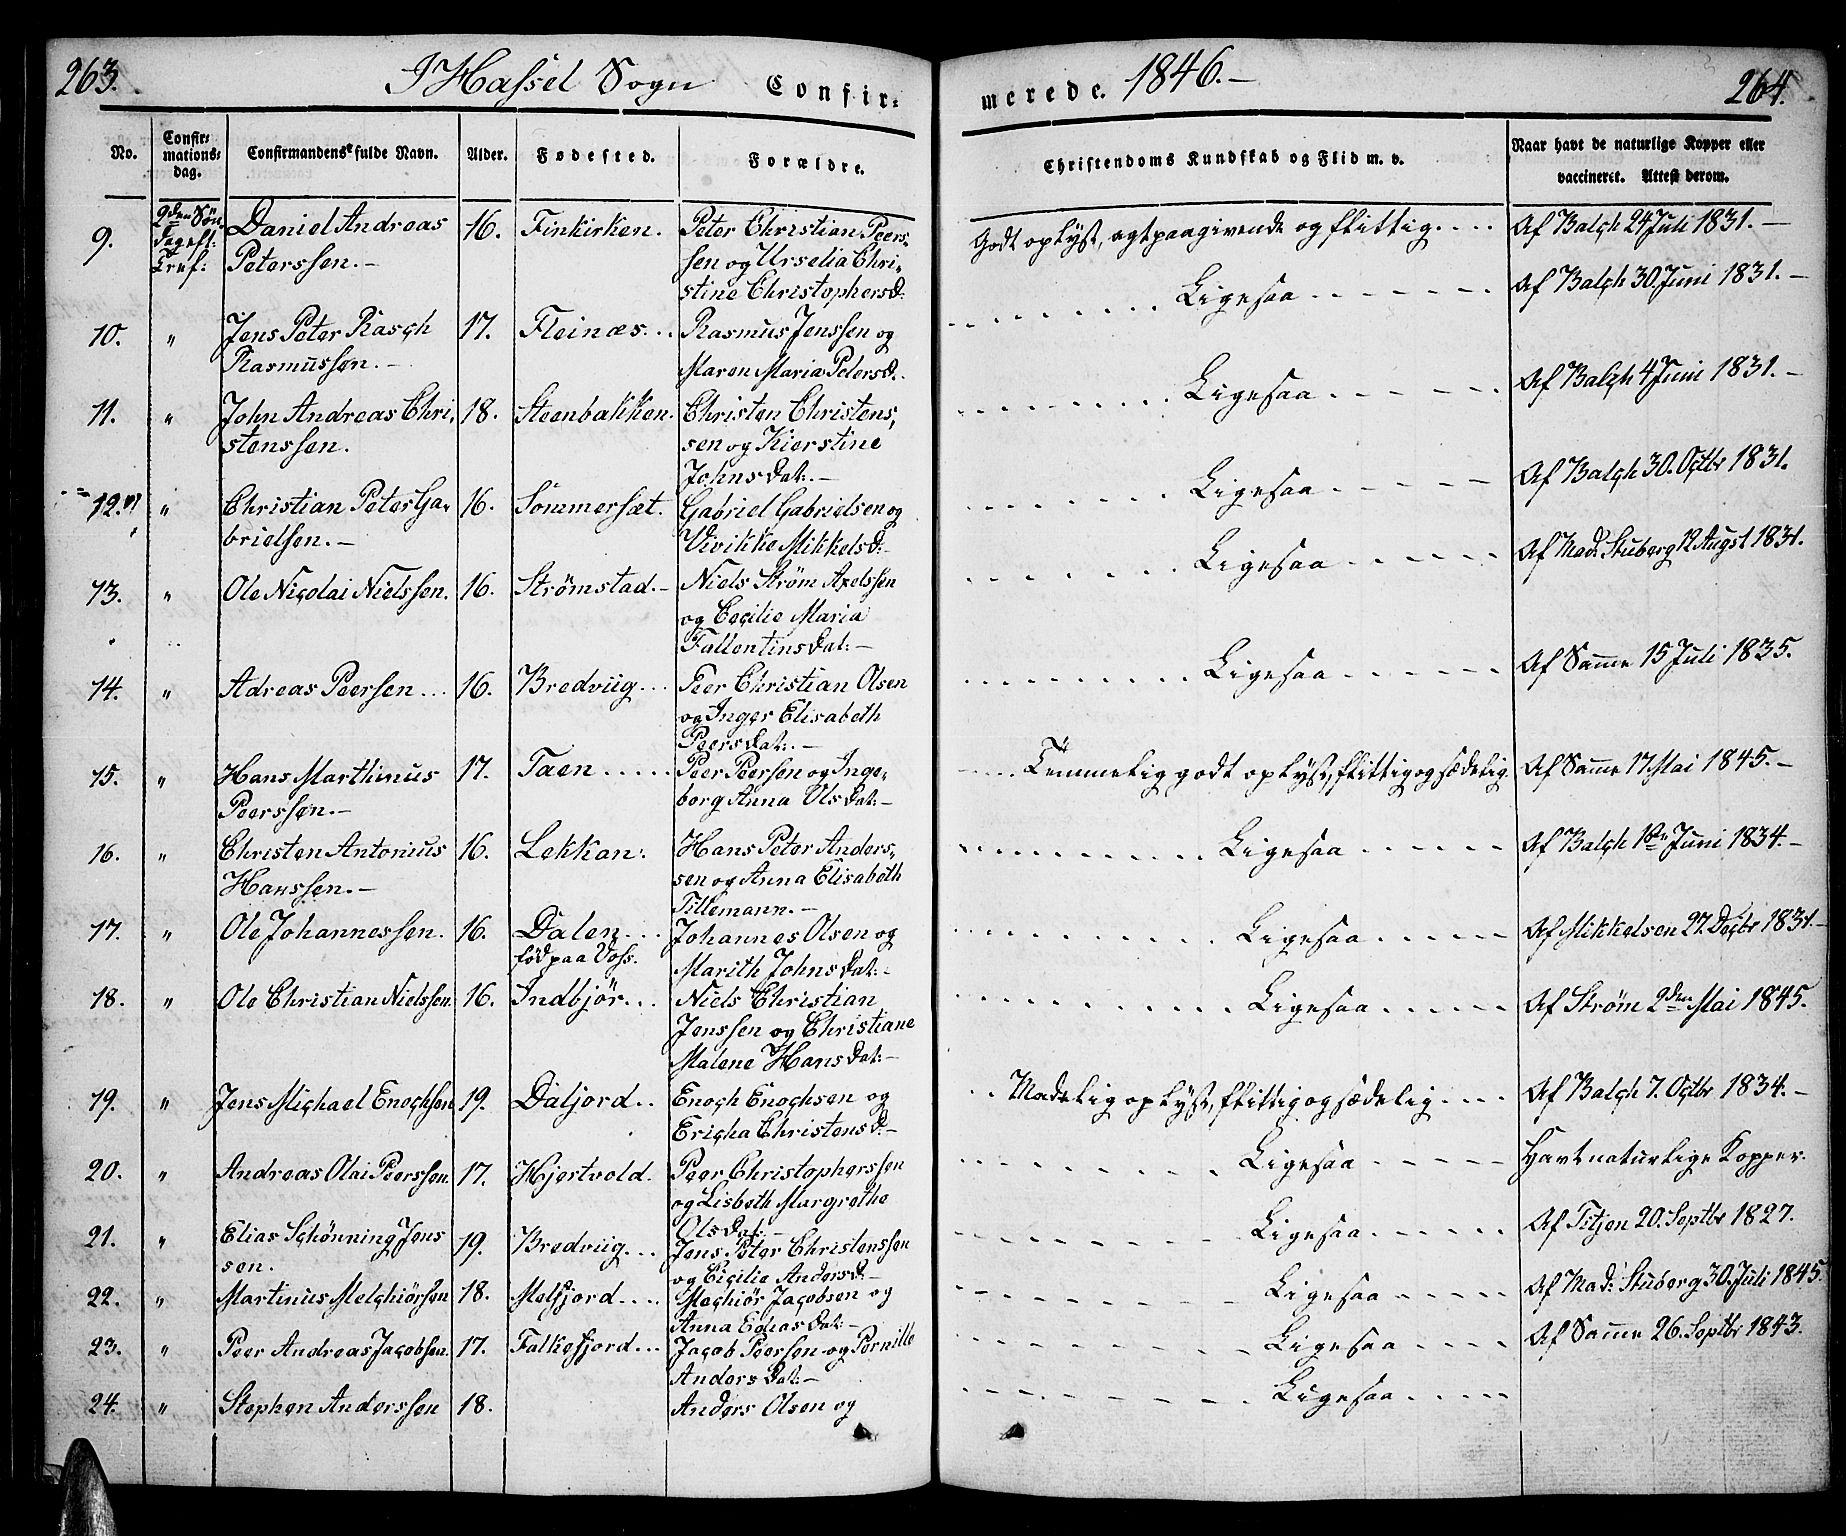 263. I Hassel Sogn Confir-
merede. 1846.- 264.
No. Confir- mations- dag. Confirmandens fulde Navn. Alder. Fødested. Forældre. Christendoms Kundskab og Flid m. v. Naar havt de naturlige Kopper eller vaccineret. Attest derom.
9. 2den Søn- Daniel Andreas 16. Finkirken. Peter Christian Peers- Godt oplyst, agtpaagivende og flittig.... Af Balch 24 Juli 1831.-
dag eft: Peterssen.- sen og Urselia Chri-
Tref: stine Christophersd:
10. " Jens Peter Rasch 17. Fleinæs... Rasmus Jenssen og Ligesaa Af Balch 30. Juni 1831.-
Rasmussen.- Maren Maria Petersd.
11. " John Andreas Chri- 18. Steenbakken. Christen Christens- Ligesaa Af Balch 4 Juni 1831.-
stenssen. sen og Kierstine
Johnsdat:-
12. " Christian Peter Ga- 16. Sommersæt. Gabriel Gabrielsen og Ligesaa Af Balch 30. Octbr 1831.
brielsen.- Vivikke Mikkelsd:-
13. " Ole Nicolai Nielssen. 16. Strømstad.- Niels Strøm Axelssen Ligesaa Af Mad: Stuberg 12 Augst 1831.
og Cecilie Maria
Fallentinsdat:-
14. " Adreas Peersen... 16. Bredviig... Peer Christian Olsen Ligesaa Af Samme 15 Juli 1835.
og Inger Elisabeth
Peersdat:.-
15. " Hans Marthinus 17. Taen..... Peer Peersen og Inge- Temmelig godt oplyst, flittig og sædelig. Af Samme 17 Mai 1845.-
Peerssen.- borg Anna Olsdat:-
16. " Christen Antonius 16. Lekkan: Hans Peter Anders- Ligesaa Af Balch 1ste Juni 1834.-
Hanssen.- sen og Anna Elisabeth
Tillemann.-
17. " Ole Johannessen. 16. Dalen... Johannes Olsen og Ligesaa Af Mikkelsen 27. Decbr 1831.-
fød paa Voss. Marith Johnsdat:-
18. " Ole Christian Nielssen. 16. Indbjør... Niels Christian Ligesaa Af Strøm 2den Mai 1845.
Jenssen og Christiane
Malene Hansdat:-
19. " Jens Michael Enochsen 19. Daljord.. Enoch Enochsen og Maadelig oplyst, flittig og sædelig.... Af Balch 7. Octbr 1834.-
Ericha Christensd:-
20. " Andreas Olai Peerssen. 17. Hjertvold. Peer Christopherssen Ligesaa Havt naturlige Kopper.
og Lisbeth Margrethe
Olsdat:-
21. " Elias Schønning Jens 19. Bredviig... Jens Peter Christenssen Ligesaa Af Titjen 20. Septbr 1827.
sen. og Cicilie Andersd-
22. " Martinus Melchiørsen 18. Melfjord.... Mechiør Jacobsen og Ligesaa Af Mad: Stuberg 30. Juli 1845.
Anna Eliasdat:-
23. " Peer Andreas Jacobsen. 17. Falkefjord... Jacob Peersen og Pernille Ligesaa Af Samme 26. Septbr 1843.
Andersdat:-
24. " Stephen Anderssen 18. Anders Olsen og Ligesaa